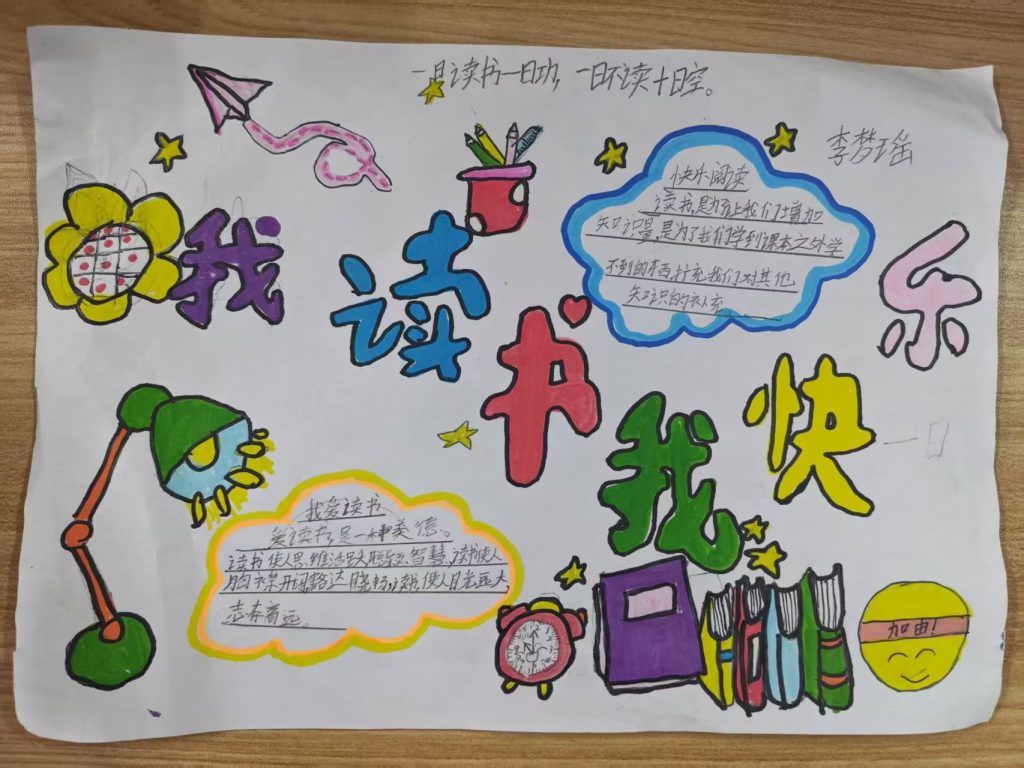 一日读书一日功，一日不读十日空。
李梦瑶
我读书我快乐
快乐阅读
读书是为了让我们增加
知识量，是为了我们学到课本之外学
不到的东西，扩充我们对其他
知识的补充。
我爱读书
爱读书，是一种美德。
读书使人思维活跃聪颖智慧，读书使人
胸襟开阔豁达晓畅，读书使人目光远大，
志存高远。
加由！